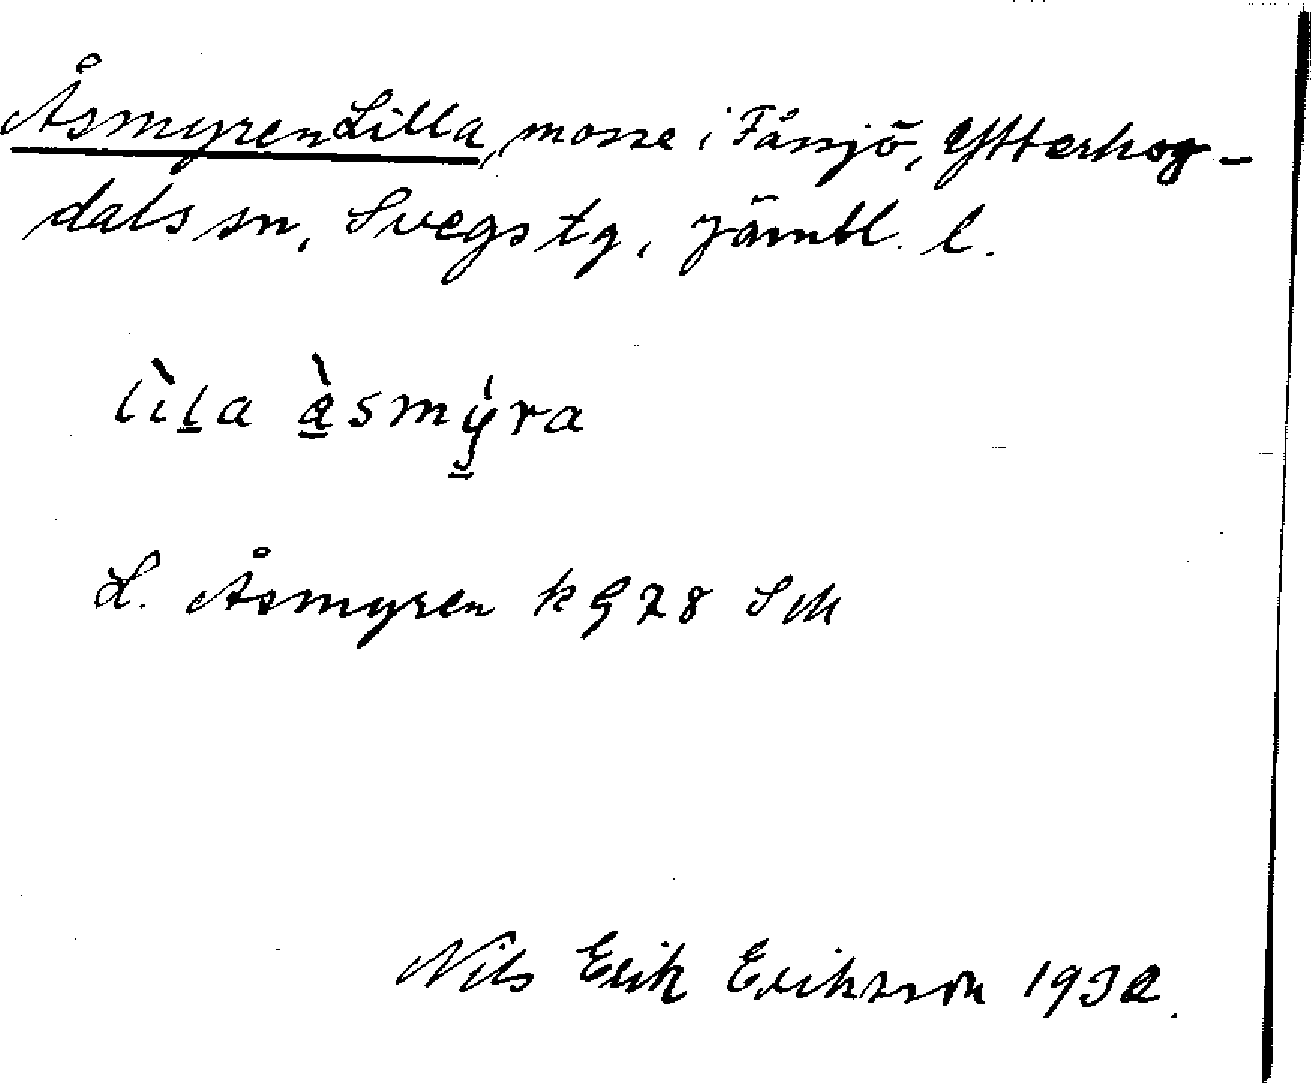 Åsmyren Lilla, mosse i Fåssjö, Ytterhog-
dals sn, Svegs tg, Jämtl. l.
lìla àsmýra
L. Åsmyren k G 28 SM
Nils Erik Eriksson 1932.